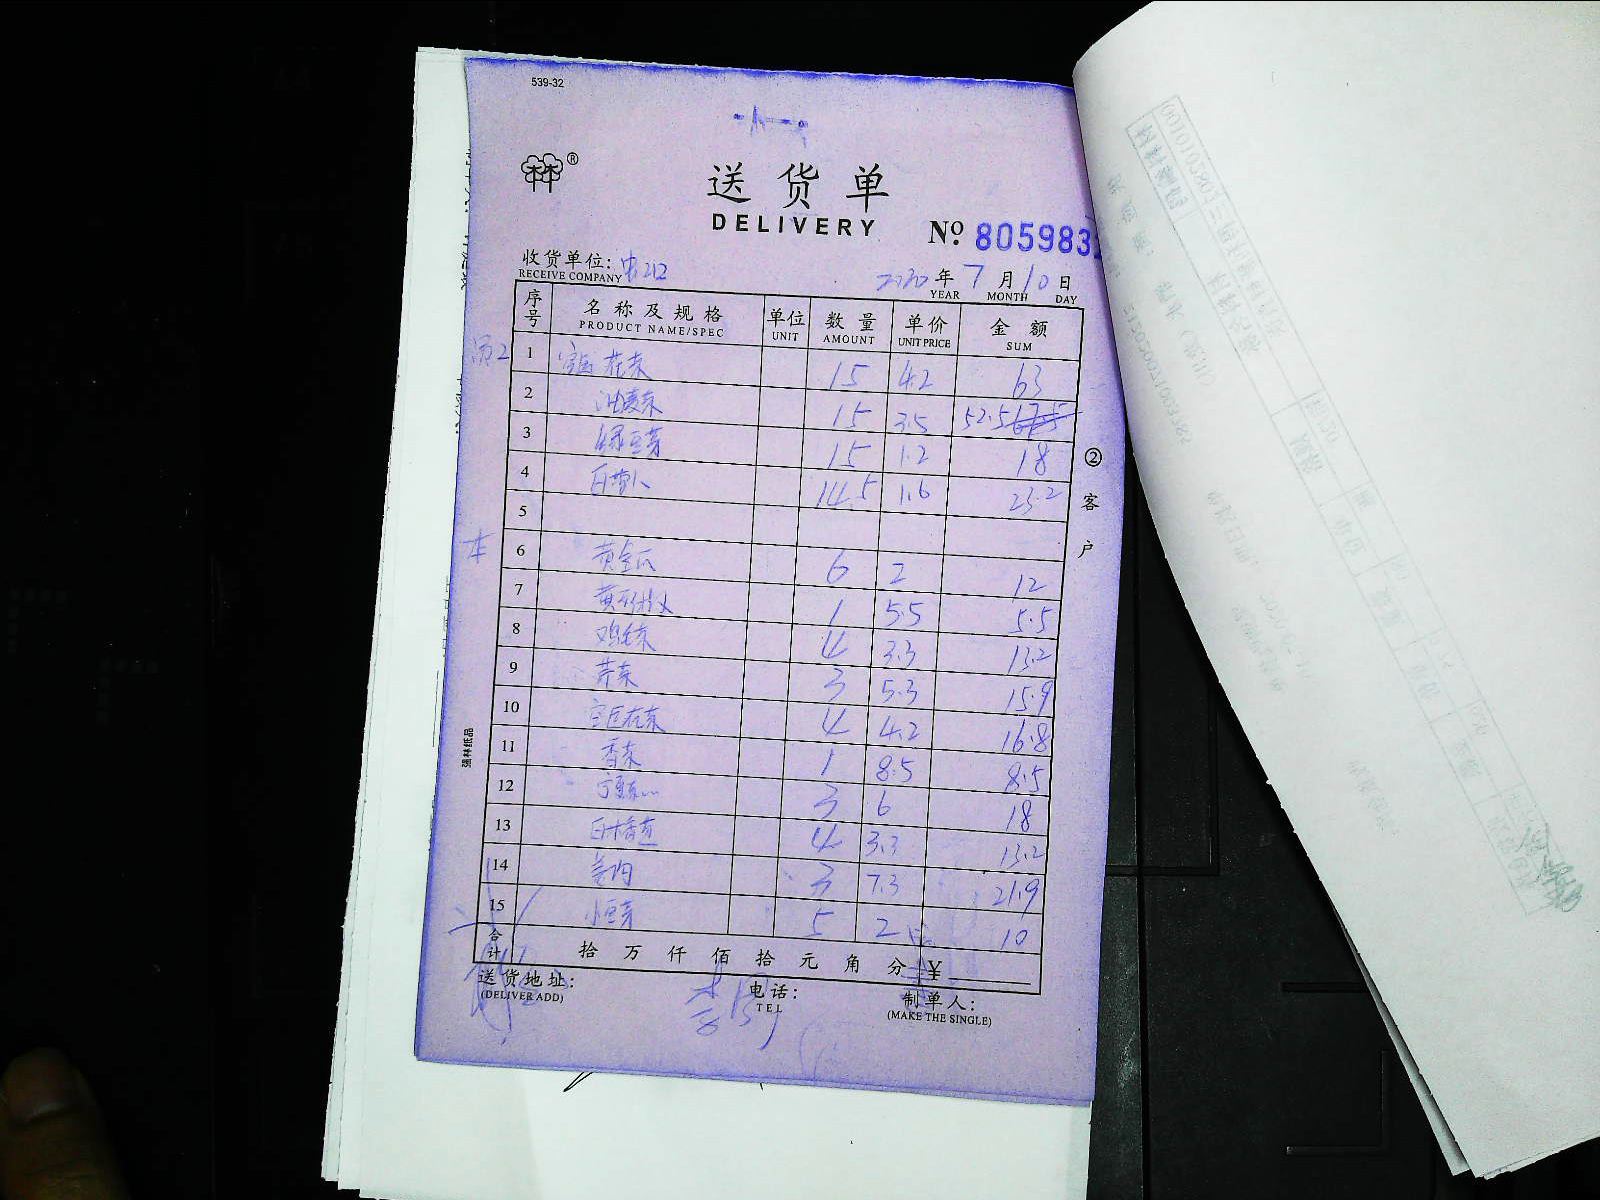 539-32
®
送货单
DELIVERY
№ 8059833
收货单位:
RECEIVE COMPANY
2020年7月10日
YEAR MONTH DAY
序号 名称及规格 单位 数量 单价 金额
PRODUCT NAME/SPEC UNIT AMOUNT UNIT PRICE SUM
1 花菜 15 4.2 63
2 油麦菜 15 3.5 52.5
3 绿豆芽 15 1.2 18
4 白萝卜 14.5 1.6 23.2
5
6 黄金瓜 6 2 12
7 1 5.5 5.5
8 鸡毛菜 4 3.3 13.2
9 芹菜 3 5.3 15.9
10 花菜 4 4.2 16.8
11 香菜 1 8.5 8.5
12 3 6 18
13 4 3.3 13.2
14 3 7.3 21.9
15 小豆芽 5 2 10
合计 拾万仟佰拾元角分 ¥
送货地址: 电话: 制单人:
(DELIVER ADD) TEL (MAKE THE SINGLE)
②客户
强林纸品